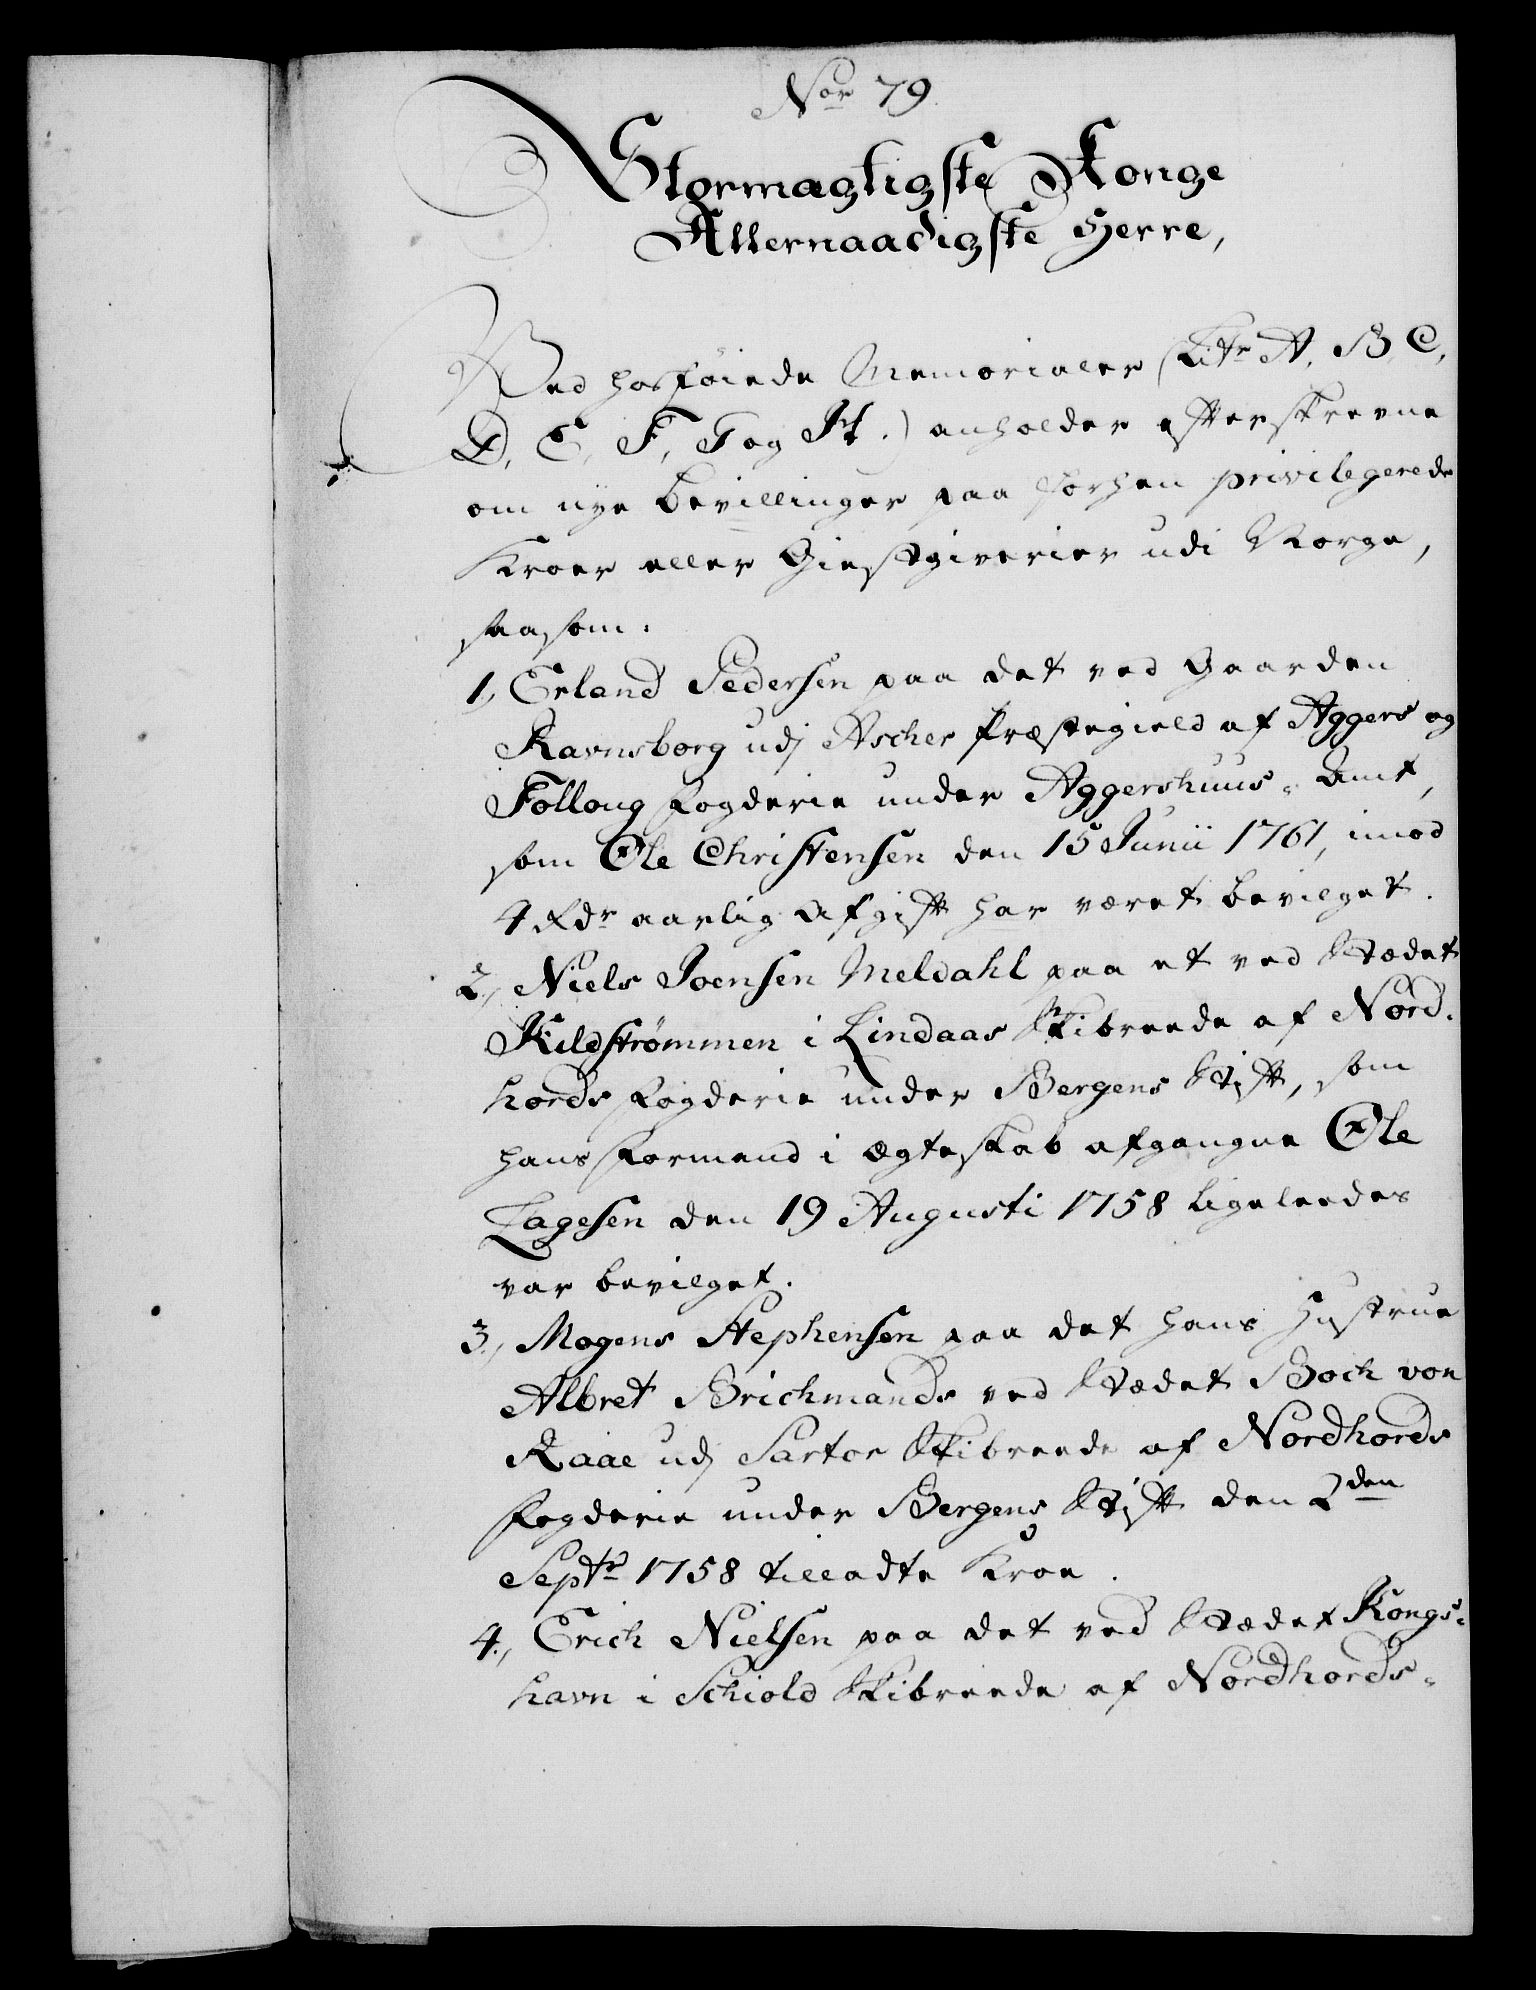 Nor 79.
Stormægtigste Konge
Allernaadigste Herre,
Ved hosføiede Memorialer (Litr A, B, C,
D, E, F, G og H.) anholder efterskrevne
om nye Bevillinger paa forhen privilegerede
Kroer eller Giestgiverier udi Norge,
saasom:
1, Erland Pedersen paa det ved Gaarden
Ravnsborg udj Ascher Præstegield af Aggers og
Folloug Fogderie under Aggershuus-Amt,
som Ole Christensen den 15 Junii 1761, imod
4 Rdr aarlig Afgift har været bevilget.
2, Niels Joensen Meldahl paa et ved Stædet
Kildstrømmen i Lindaas Skibreede af Nord-
hords Fogderie under Bergens Stift, som
hans Formand i Ægteskab afgangne Ole
Lagesen den 19 Augusti 1758 ligeleedes
var bevilget.
3, Mogens Stephensen paa det hans Hustrue
Albret Brichmands ved Stædet Boch von
Raae udj Sartor Skibreede af Nordhords
Fogderie under Bergens Stift den 2den
Septr 1758 tilladte Kroe.
4, Erich Nielsen paa det ved Stædet Kongs-
havn i Schiold Skibreede af Nordhords-